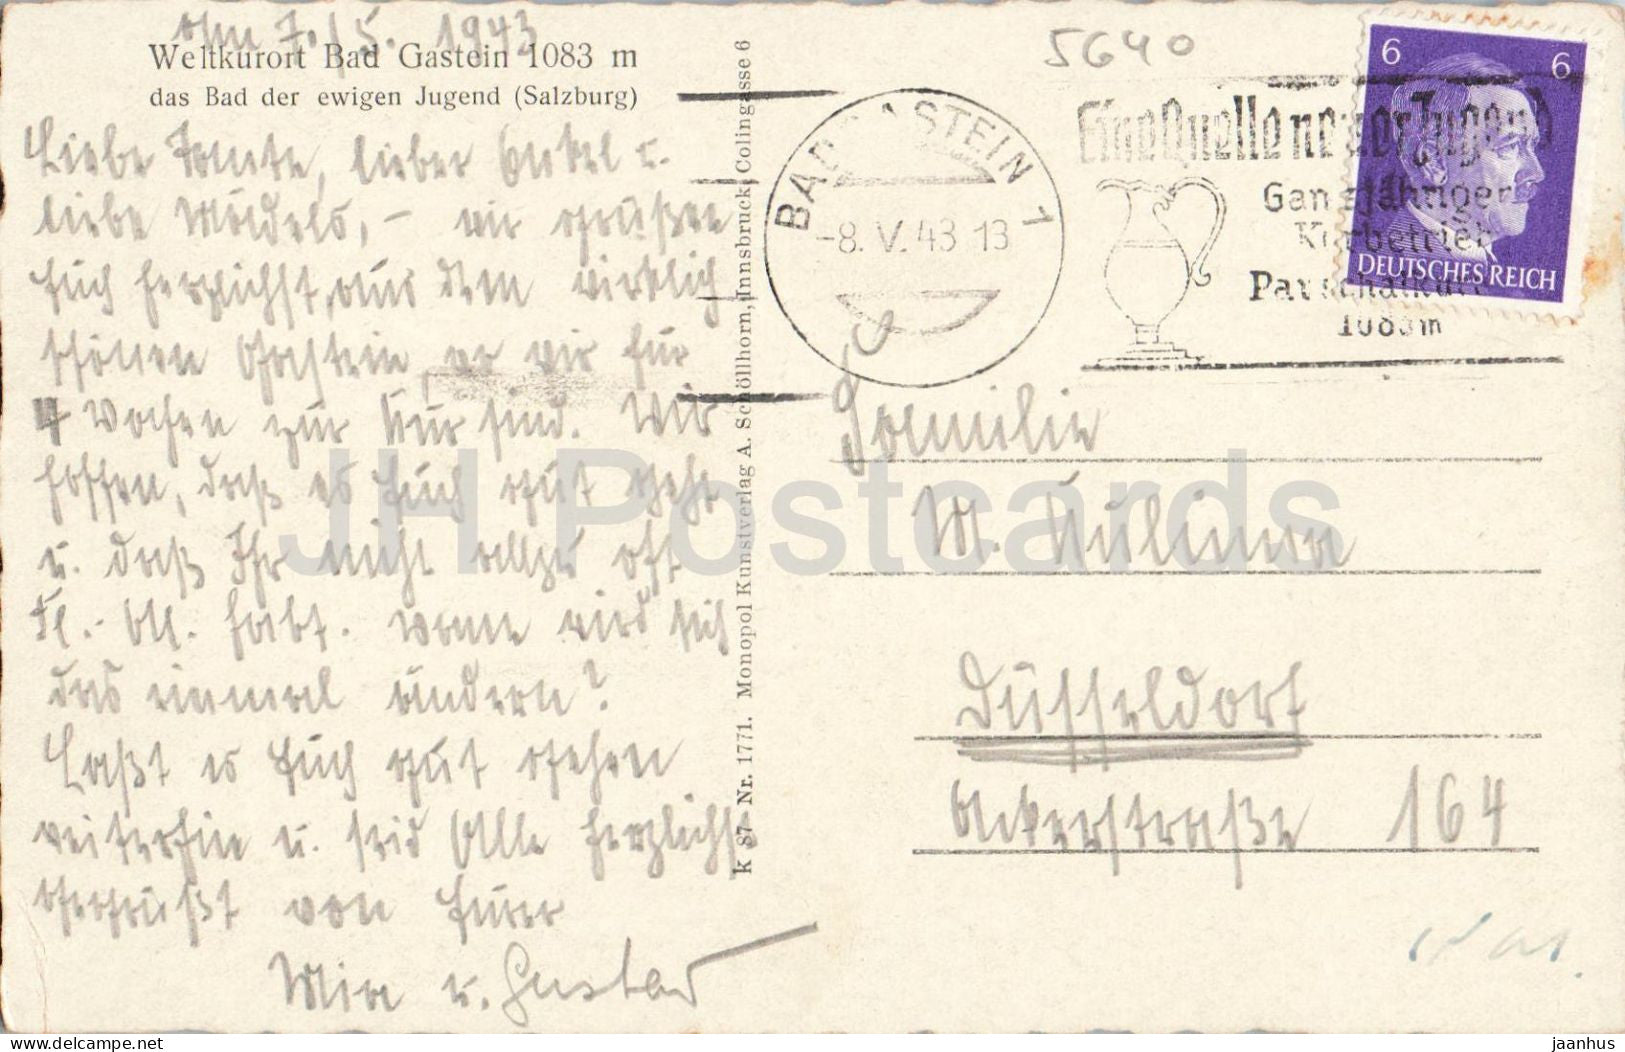 Am 7./5. 1943
Weltkurort Bad Gastein 1083 m
das Bad der ewigen Jugend (Salzburg)
Liebe Tante, lieber Onkel u.
liebe Mädels, – wir grüßen
Euch herzlichst, aus dem wirklich
schönen Gastein, wo wir für
4 Wochen zur Kur sind. Wir
hoffen, daß es Euch gut geht
u. daß Ihr nicht allzu oft
Fl.-Al. habt. Wann wird sich
das einmal ändern?
Laßt es Euch gut gehen
weiterhin u. seid Alle herzlichst
gegrüßt von Eurer
Mia u. Gustav
k 87 - Nr. 1771. Monopol Kunstverlag A. Schöllhorn, Innsbruck, Colingasse 6
5640
BAD GASTEIN 1
-8.V.43 13
Eine Quelle neuer Jugend
Ganzjähriger
Kurbetrieb
1083m
6 6
DEUTSCHES REICH
Familie
M.
Düsseldorf
Ackerstraße 164
JH Postcards
www.delcampe.net
jaanhus